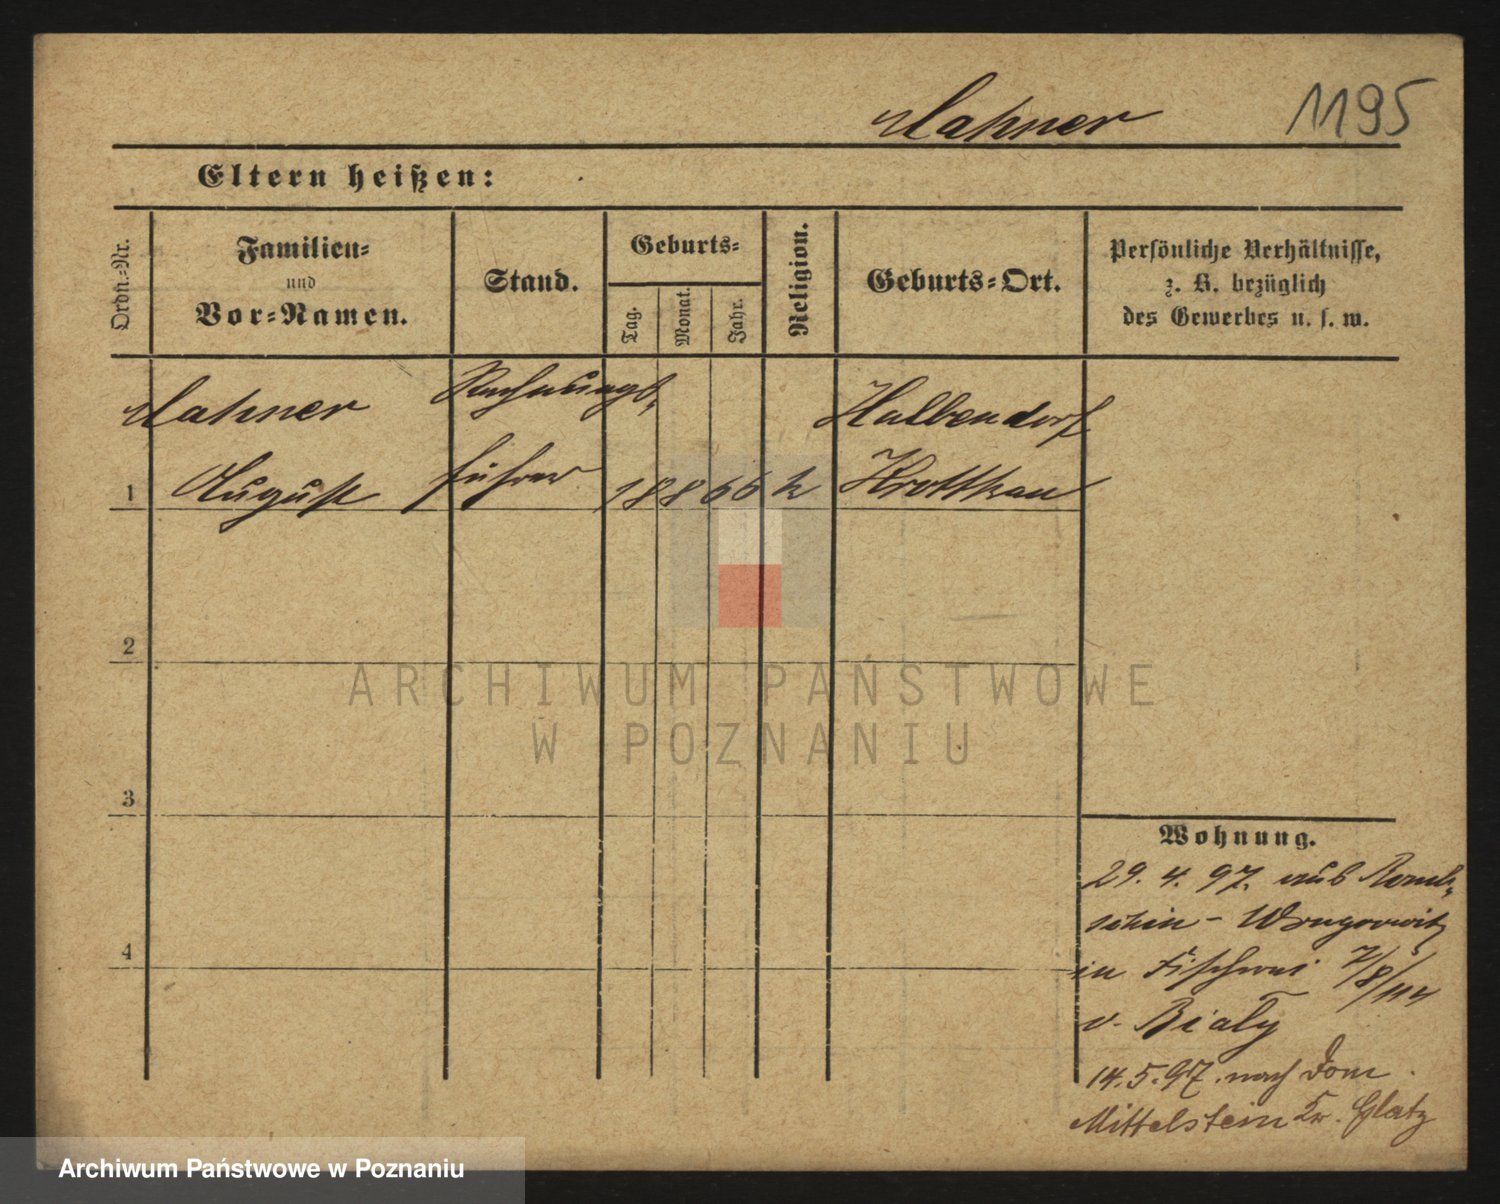 Mahner 1195
Eltern heißen:
Ordn.=Nr.
Familien=
und
Vor=Namen.
Stand.
Geburts=
Tag.
Monat.
Jahr.
Religion.
Geburts=Ort.
Persönliche Verhältnisse,
z. B. bezüglich
des Gewerbes u. s. w.
Mahner Rechnungs- Halbendorf
1 August führer 1886 k Grottkau
2
3
4
Wohnung.
29. 4. 97. aus
schin - Wongrowitz
in Fischerei 7/8/
v. Bialy
14. 5. 97. nach Dom
Mittelstein Kr. Glatz
ARCHIWUM PAŃSTWOWE
W POZNANIU
Archiwum Państwowe w Poznaniu